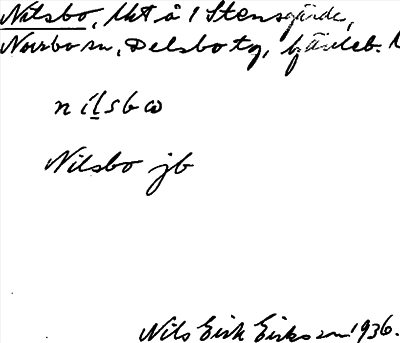 Nilsbo, lht å 1 Stensgärde,
Norrbo sn, Delsbo tg, Gävleb. l
nilsbω
Nilsbo jb
Nils Eirik Eiriksson 1936.